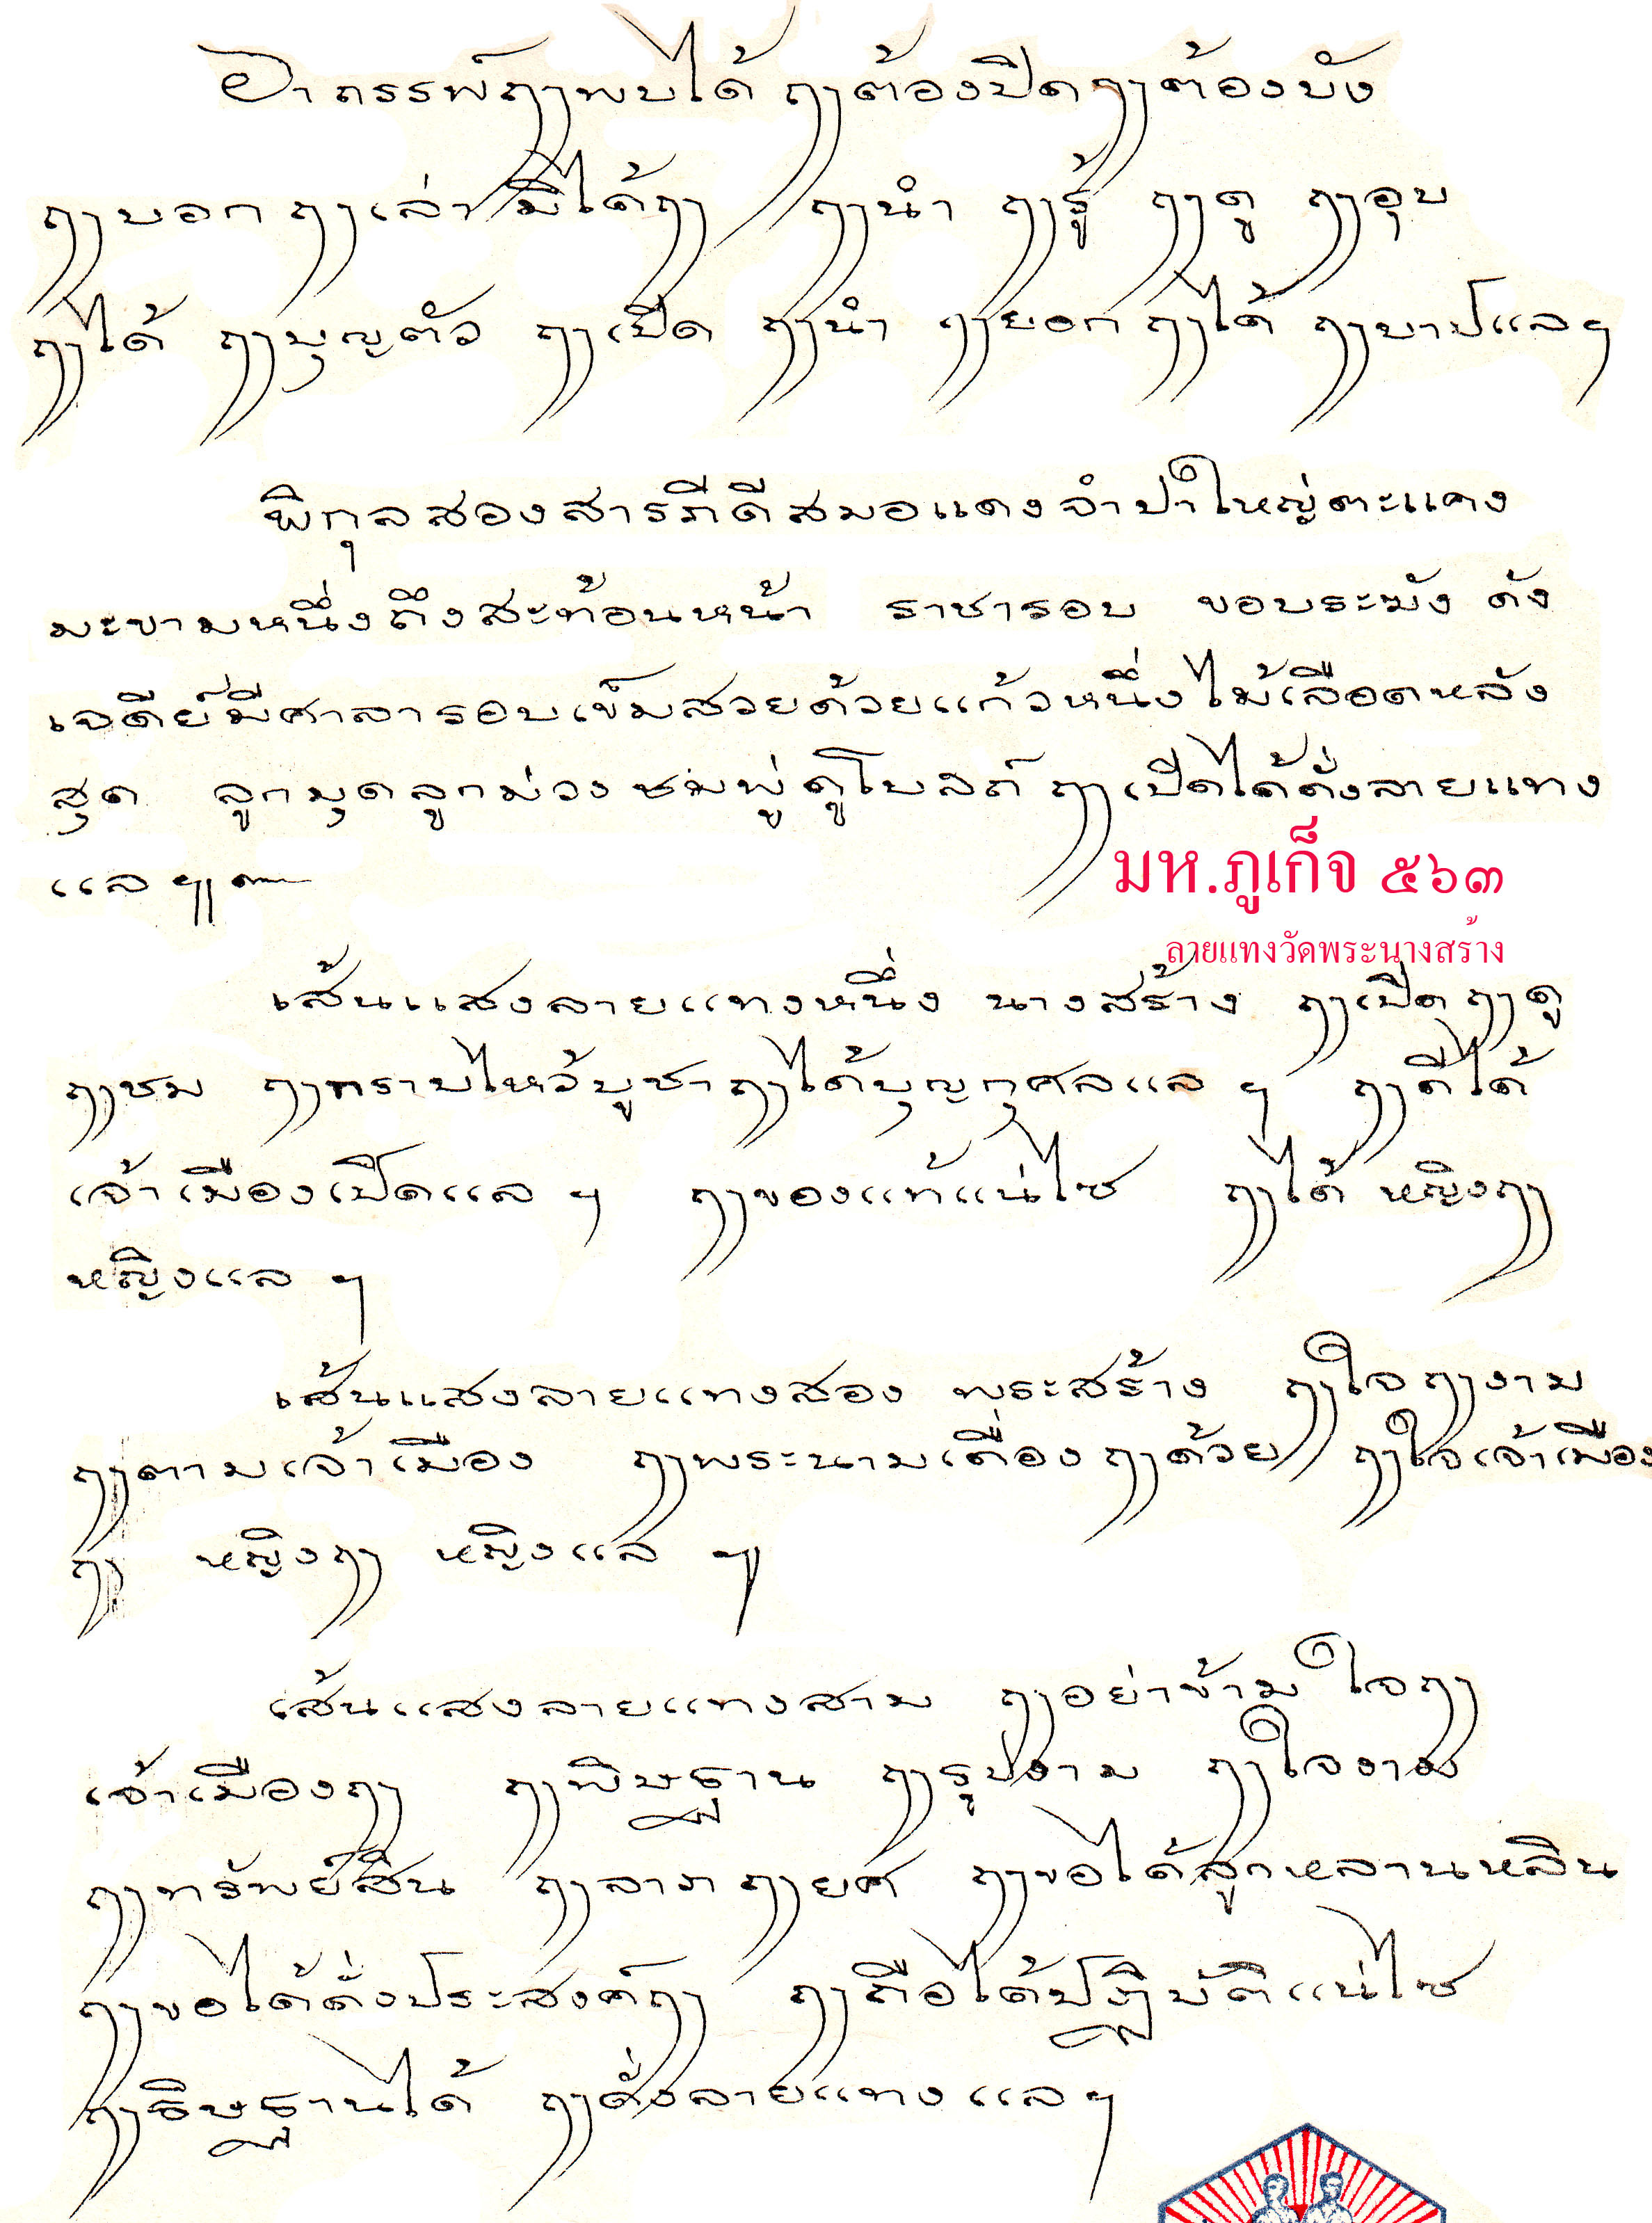 อาถรรพ์ฤๅพบได้ ฤๅต้องปิดฤๅต้องบัง
ฤๅบอก ฤๅเล่า มิได้ฤๅ ฤๅนำ ฤๅรู้ ฤๅดู ฤๅอุบ
ฤๅได้ ฤๅบุญตัว ฤๅเปิด ฤๅนำ ฤๅยอก ฤๅได้ ฤๅบาปแลฯ
พิกุลสองสารภีดีสมอแดงจำปาใหญ่ตะแคง
มะขามหนึ่งถึงสะท้อนหน้า ราชารอบ ขอบระฆัง ดัง
เจดีย์มีศาลารอบเข็มสวยด้วยแก้วหนึ่งไม้เลือดหลัง
สุด ลูกมุดลูกม่วงชมพู่ดูโบสถ์ ฤๅเปิดได้ดั่งลายแทง
แล ๚
มห.ภูเก็จ ๕๖๓
ลายแทงวัดพระนางสร้าง
เส้นแสงลายแทงหนึ่ง นางสร้าง ฤๅเปิดฤๅดู
ฤๅชม ฤๅกราบไหว้บูชาฤๅได้บุญกุศลแล ฯ ฤๅดีได้
เจ้าเมืองเปิดแล ฯ ฤๅของแท้แน่ไซ ฤๅได้ หญิงฤๅ
หญิงแล ฯ
เส้นแสงลายแทงสอง พระสร้าง ฤๅใจฤๅงาม
ฤๅตามเจ้าเมือง ฤๅพระนามเดื่องฤๅด้วย ฤๅใจเจ้าเมือง
ฤๅ หญิงฤๅ หญิงแล ๚
เส้นแสงลายแทงสาม ฤๅอย่าข้ามใจฤๅ
เจ้าเมืองฤๅ ฤๅพิษฐาน ฤๅรูปงาม ฤๅใจงาม
ฤๅทรัพย์สิน ฤๅลาภ ฤๅยศ ฤๅขอได้ลูกหลานหลิน
ฤๅขอได้ดั่งประสงค์ฤๅ ฤๅถือได้ปฏิบัติแน่ไซ
ฤๅธิษฐานได้ ฤๅดั่งลายแทงแลฯ